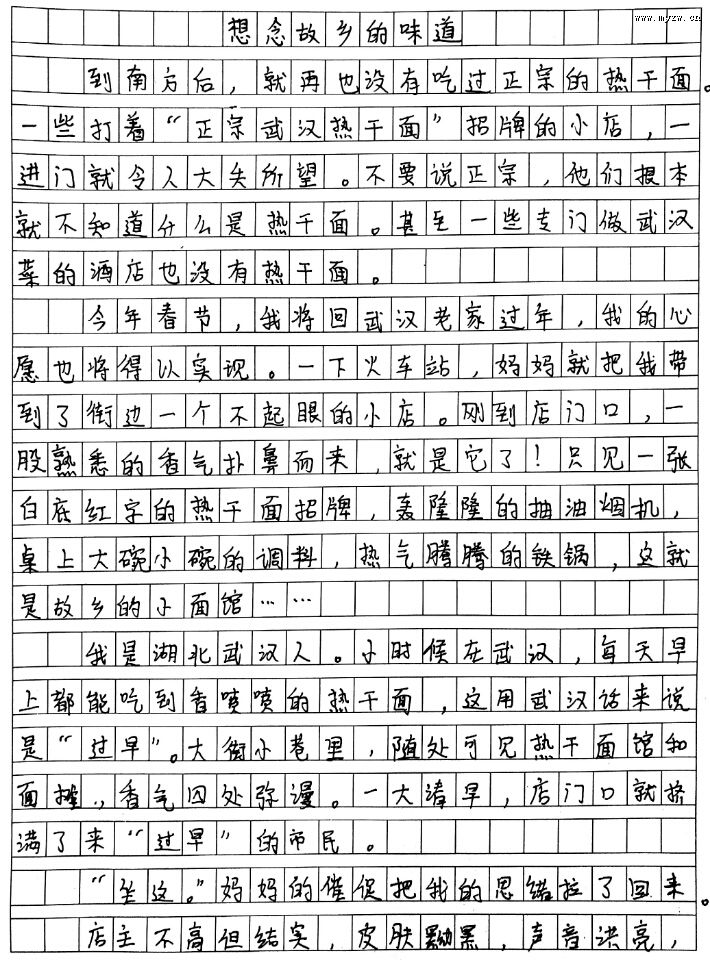 www.myzw.cn
想念故乡的味道
到南方后，就再也没有吃过正宗的热干面。
一些打着“正宗武汉热干面”招牌的小店，一
进门就令人大失所望。不要说正宗，他们根本
就不知道什么是热干面。甚至一些专门做武汉
菜的酒店也没有热干面。
今年春节，我将回武汉老家过年，我的心
愿也将得以实现。一下火车站，妈妈就把我带
到了街边一个不起眼的小店。刚到店门口，一
股熟悉的香气扑鼻而来，就是它了！只见一张
白底红字的热干面招牌，轰隆隆的抽油烟机，
桌上大碗小碗的调料，热气腾腾的铁锅，这就
是故乡的小面馆……
我是湖北武汉人。小时候在武汉，每天早
上都能吃到香喷喷的热干面，这用武汉话来说
是“过早”。大街小巷里，随处可见热干面馆和
面摊，香气四处弥漫。一大清早，店门口就挤
满了来“过早”的市民。
“坐这。”妈妈的催促把我的思绪拉了回来。
店主不高但结实，皮肤黝黑，声音洪亮，